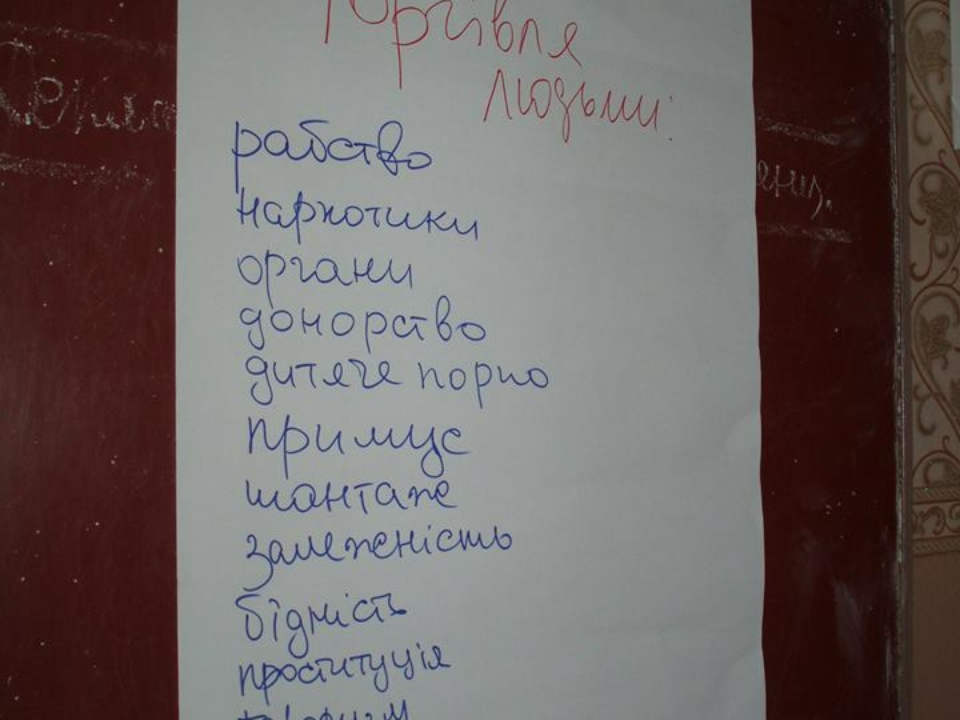 Торгівля
людьми:
рабство
наркотики
органи
донорство
дитяче порно
примус
шантаж
залежність
бідність
проституція